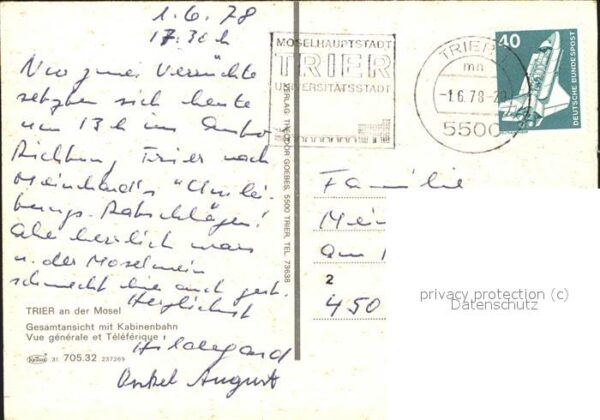 1.6.78
17.30h
Nur zwei Verrückte
setzten sich heute
um 13h ins Auto
Richtung Trier nach
Meinhard's "Umlei-
tungs-Ratschlägen!
Aber herrlich war's
u. der Moselwein
schmeckt hier auch gut.
Herzlichst
Hildegard
Onkel August
TRIER an der Mosel
Gesamtansicht mit Kabinenbahn
Vue générale et Téléférique
31 705.32 237269
VERLAG THEODOR GOEBES, 5500 TRIER, TEL. 73638
MOSELHAUPTSTADT
TRIER
UNIVERSITÄTSSTADT
TRIER
mn
-1.6.78-20
5500
40
DEUTSCHE BUNDESPOST
Familie
Mein
Am
2
450
privacy protection (c)
Datenschutz